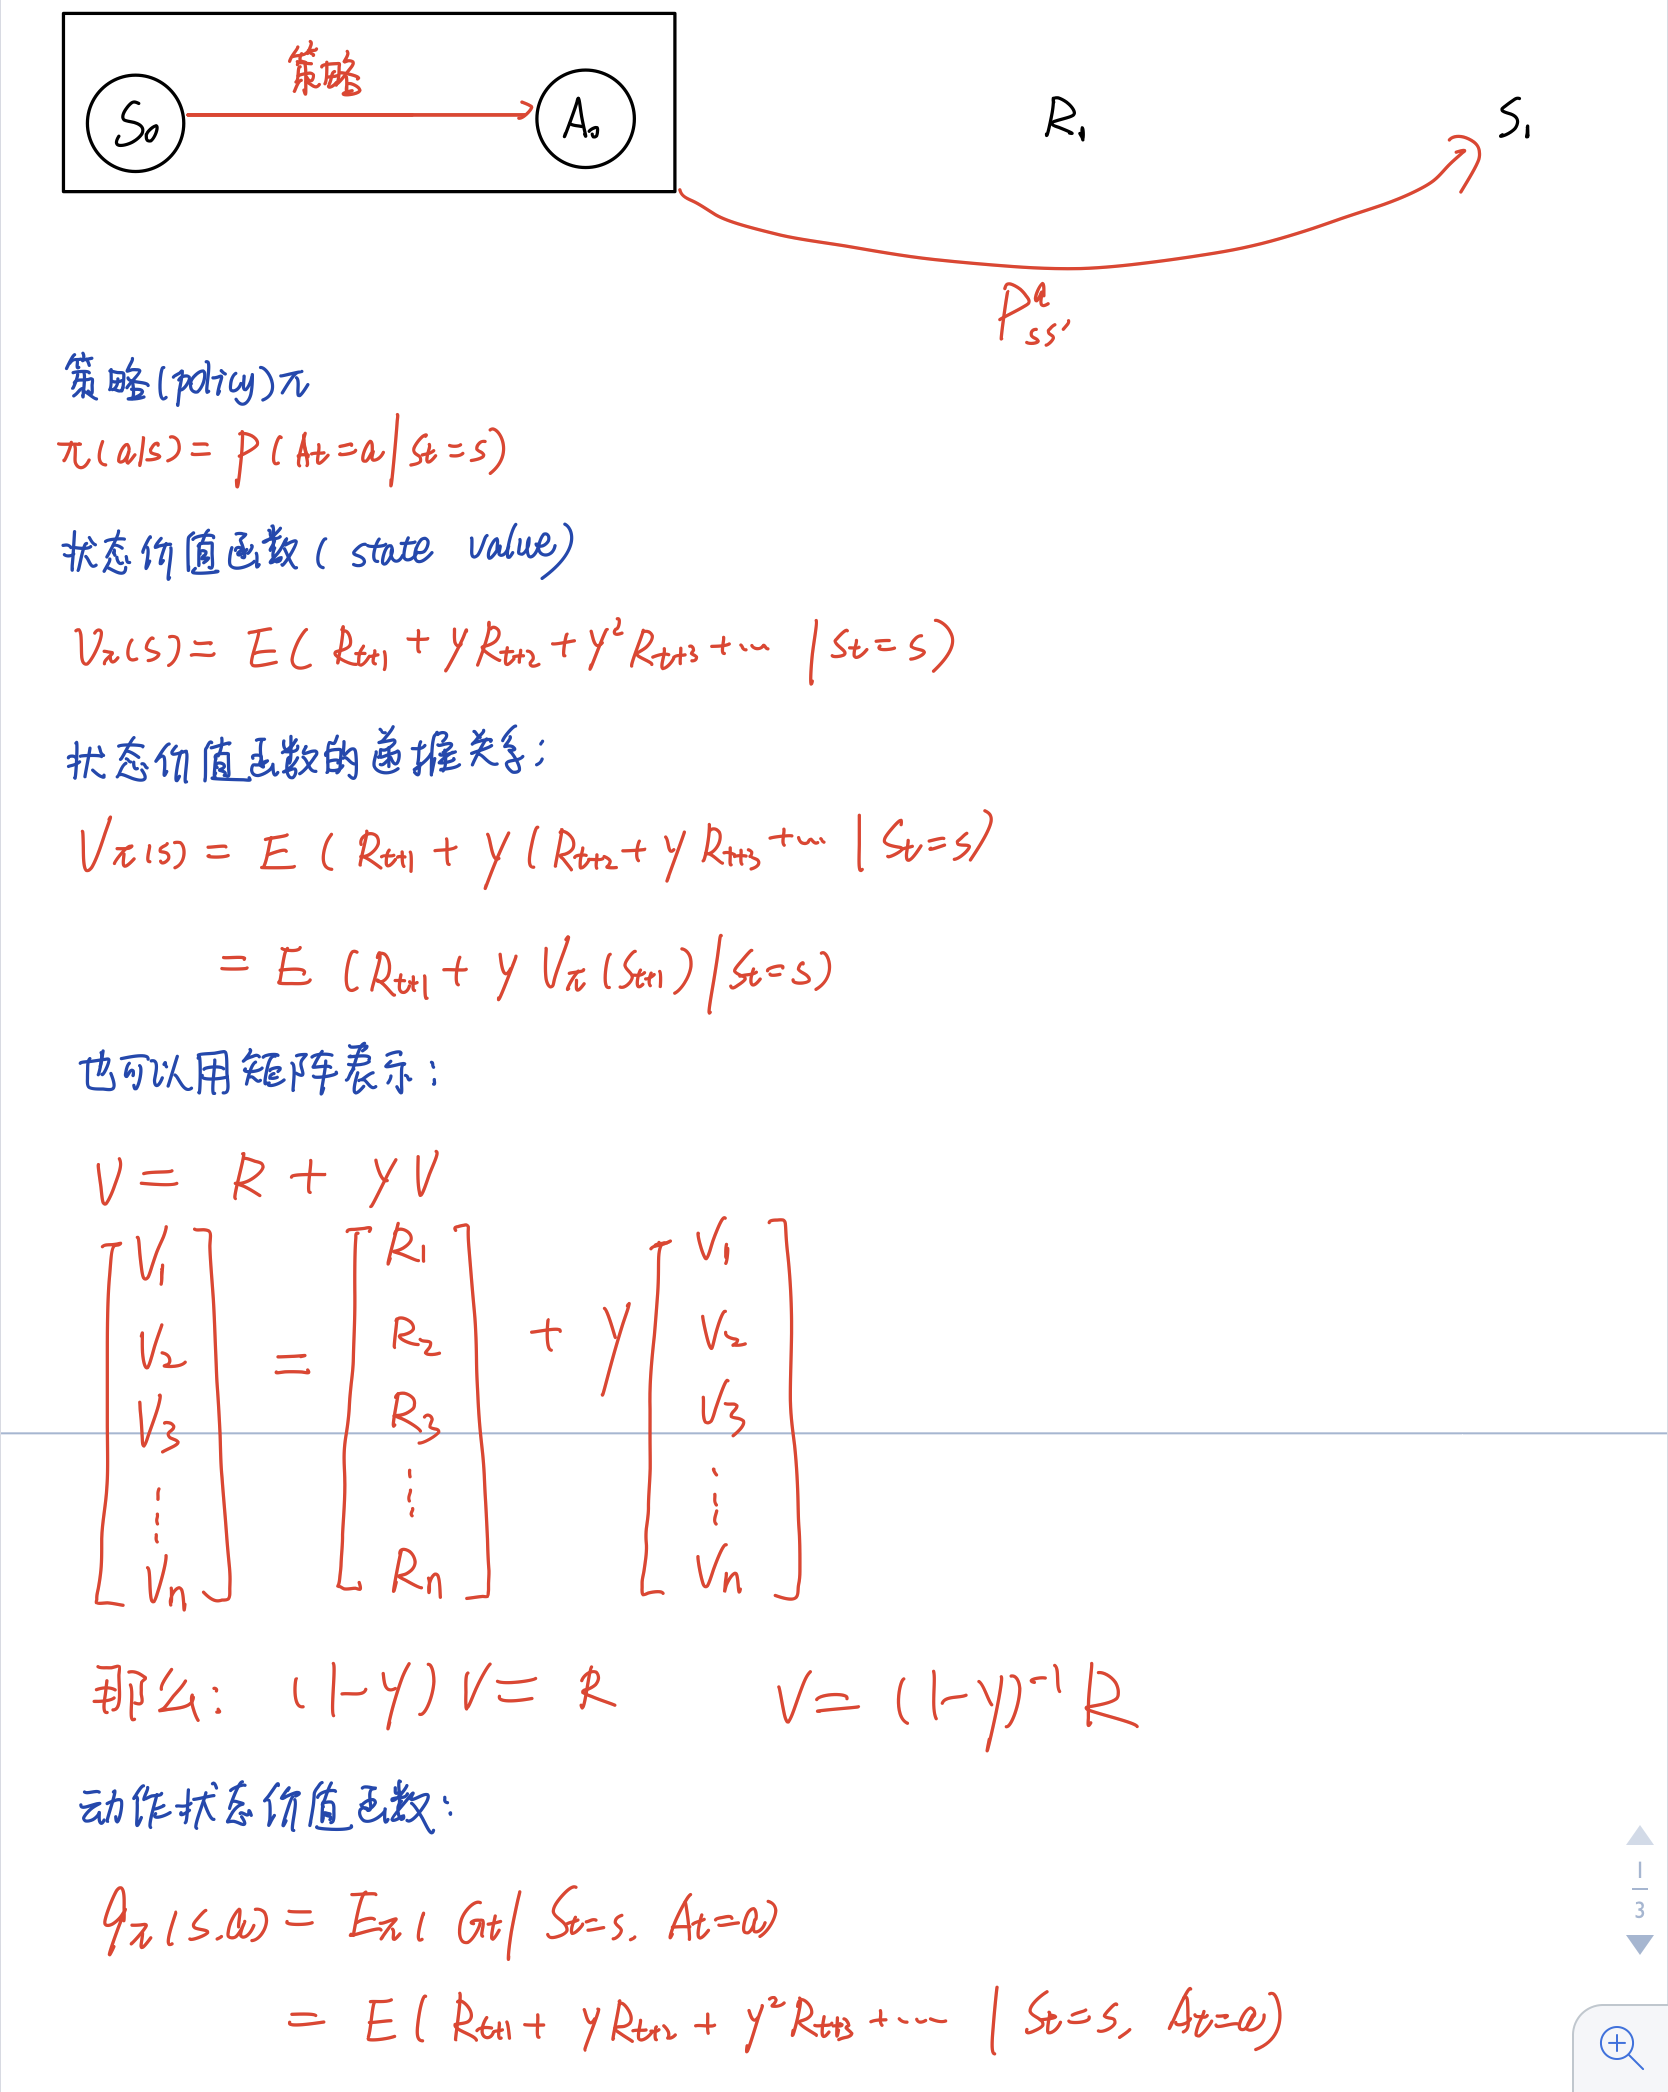 策略
S₀ A₀ R₁ S₁
Pᵃss'
策略(policy)π
π(a|s) = P(At=a|St=s)
状态价值函数(state value)
Vπ(s) = E(Rt+1 + γRt+2 + γ²Rt+3 + … | St=s)
状态价值函数的递推关系:
Vπ(s) = E(Rt+1 + γ(Rt+2 + γRt+3 + … | St=s)
= E(Rt+1 + γVπ(St+1)|St=s)
也可以用矩阵表示:
V = R + γV
V₁ R₁ V₁
V₂ = R₂ + γ V₂
V₃ R₃ V₃
⋮ ⋮ ⋮
Vn Rn Vn
那么: (1-γ)V = R V = (1-γ)⁻¹R
动作状态价值函数:
qπ(s.a) = Eπ(Gt|St=s. At=a)
= E(Rt+1 + γRt+2 + γ²Rt+3 + … | St=s, At=a)
1
3